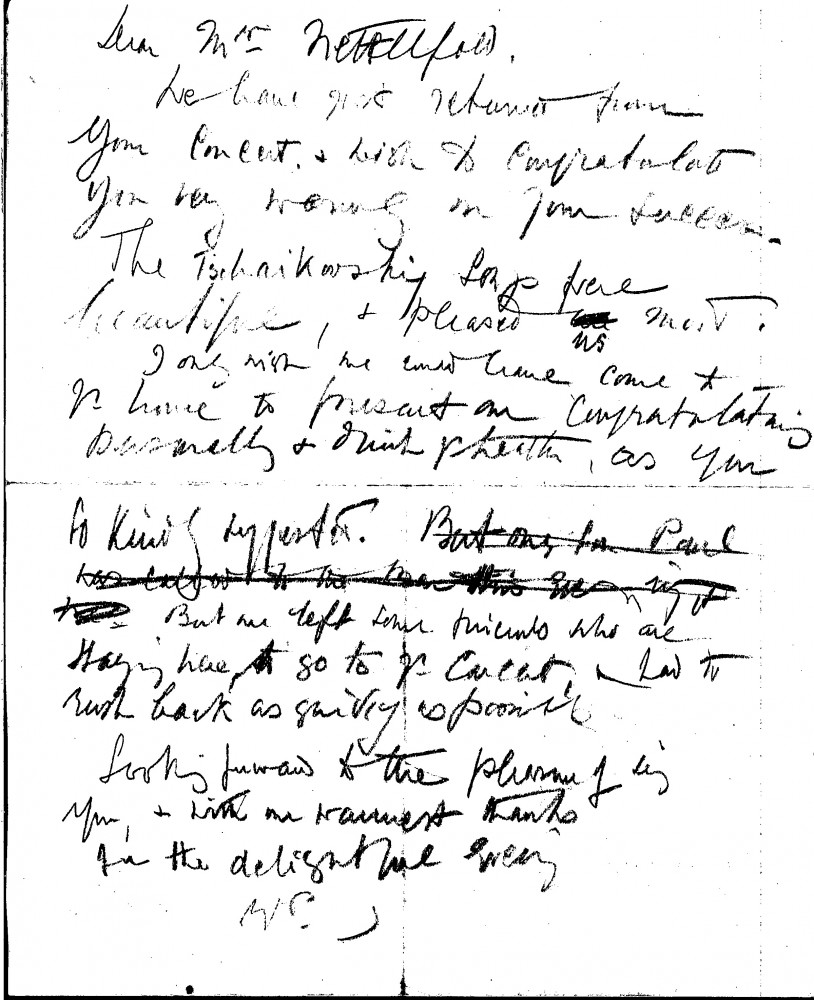 Dear Mrs Nettlefold,
We have just returned from
Your Concert, & wish to Congratulate
You very warmly on your success.
The Tschaikowsky songs were
beautiful, & pleased us most.
I only wish we could have come to
yr house to present our Congratulations
personally & drink yr health, as you
so kindly suggested. But our son Paul
But we left some friends who are
staying here, to go to yr Concert, & had to
rush back as quickly as possible
Looking forward to the pleasure of seeing
you, & with our warmest thanks
for the delightful evening